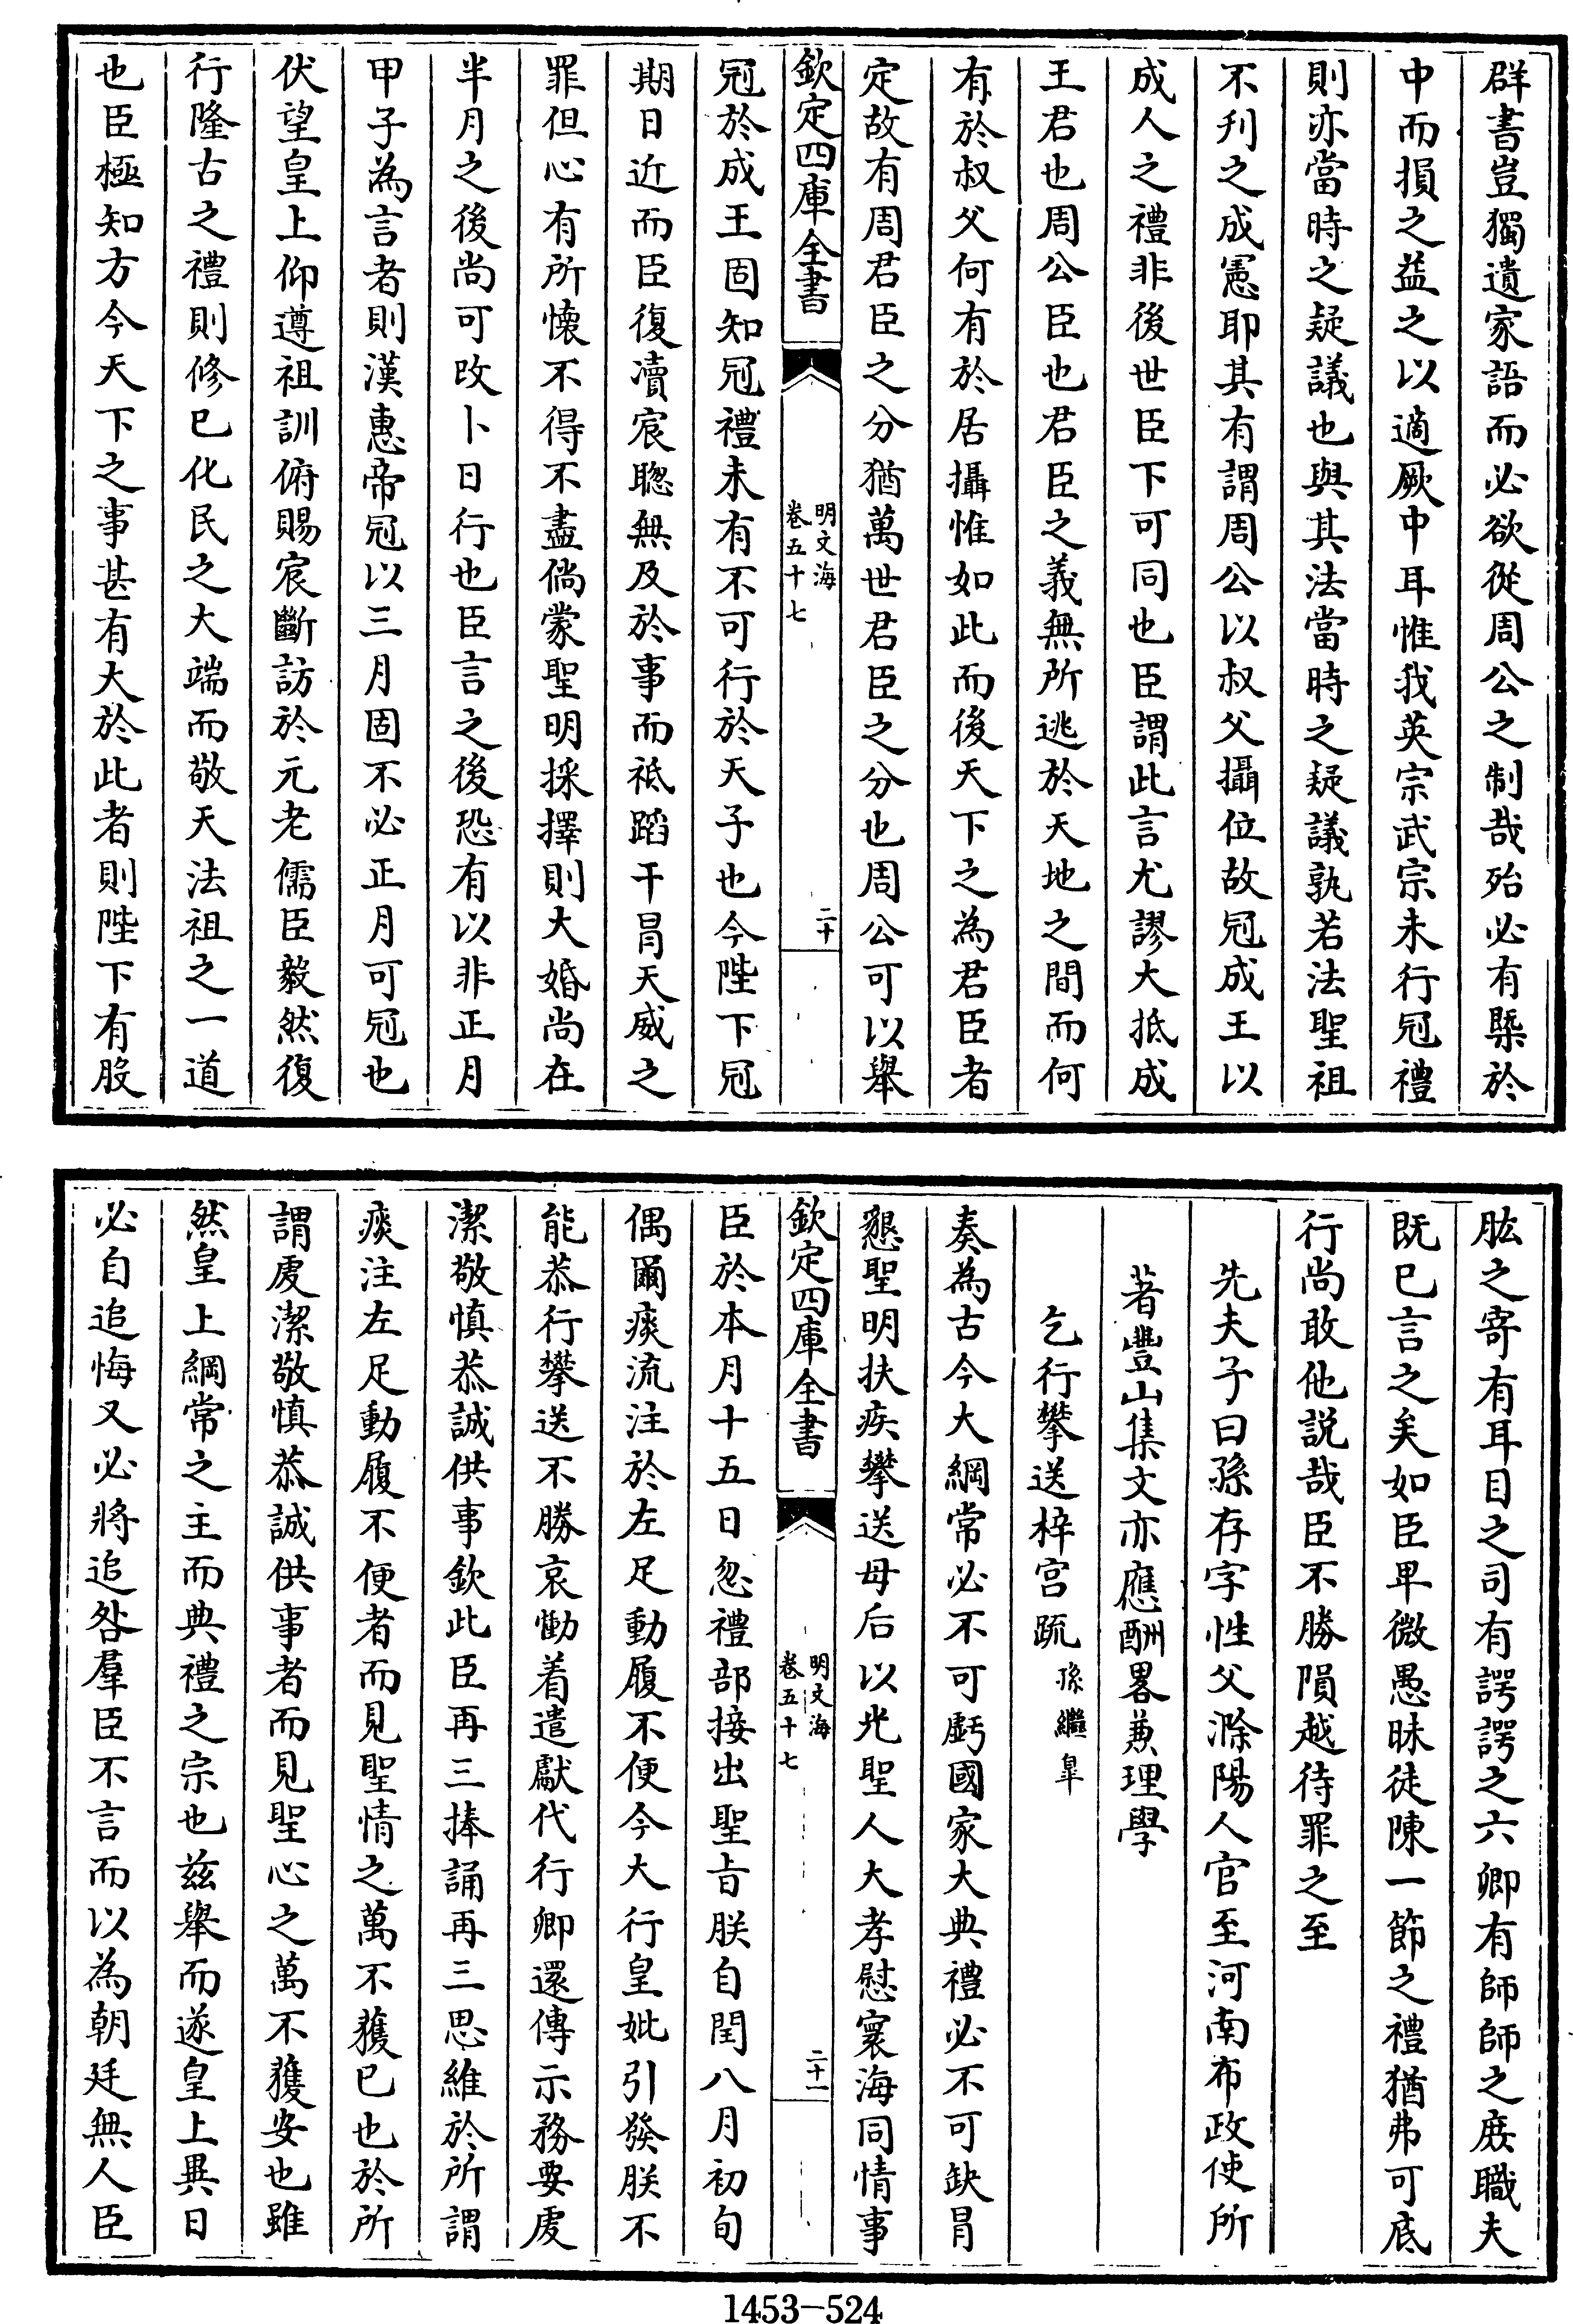 群書豈獨遺家語而必欲從周公之制哉殆必有槩於
中而損之益之以適厥中耳惟我英宗武宗未行冠禮
則亦當時之疑議也與其法當時之疑議孰若法聖祖
不刋之成憲耶其有謂周公以叔父攝位故冠成王以
成人之禮非後世臣下可同也臣謂此言尤謬大抵成
王君也周公臣也君臣之義無所逃於天地之間而何
有於叔父何有於居攝惟如此而後天下之為君臣者
定故有周君臣之分猶萬世君臣之分也周公可以舉
欽定四庫全書
明文海
卷五十七
二十
冠於成王固知冠禮未有不可行於天子也今陛下冠
期日近而臣復凟宸聰無及於事而祗蹈干冒天威之
罪但心有所懐不得不盡倘蒙聖明採擇則大婚尚在
半月之後尚可改卜日行也臣言之後恐有以非正月
甲子為言者則漢惠帝冠以三月固不必正月可冠也
伏望皇上仰遵祖訓俯賜宸斷訪於元老儒臣毅然復
行隆古之禮則修已化民之大端而敬天法祖之一道
也臣極知方今天下之事甚有大於此者則陛下有股
肱之寄有耳目之司有諤諤之六卿有師師之庶職夫
既已言之矣如臣早微愚昧徒陳一節之禮猶弗可底
行尚敢他説哉臣不勝隕越待罪之至
先夫子曰孫存字性父滁陽人官至河南布政使所
著豐山集文亦應酬畧兼理學
乞行攀送梓宫疏孫繼臯
奏為古今大綱常必不可虧國家大典禮必不可缺冒
懇聖明扶疾攀送母后以光聖人大孝慰寰海同情事
欽定四庫全書
明文海
卷五十七
二十一
臣於本月十五日忽禮部接出聖旨朕自閏八月初旬
偶爾痰流注於左足動履不便今大行皇妣引發朕不
能恭行攀送不勝哀慟着遣獻代行卿還傳示務要虔
潔敬慎恭誠供事欽此臣再三捧誦再三思維於所謂
痰注左足動履不便者而見聖情之萬不獲已也於所
謂虔潔敬慎恭誠供事者而見聖心之萬不獲安也雖
然皇上綱常之主而典禮之宗也兹舉而遂皇上異日
必自追悔又必將追咎羣臣不言而以為朝廷無人臣
1453-524